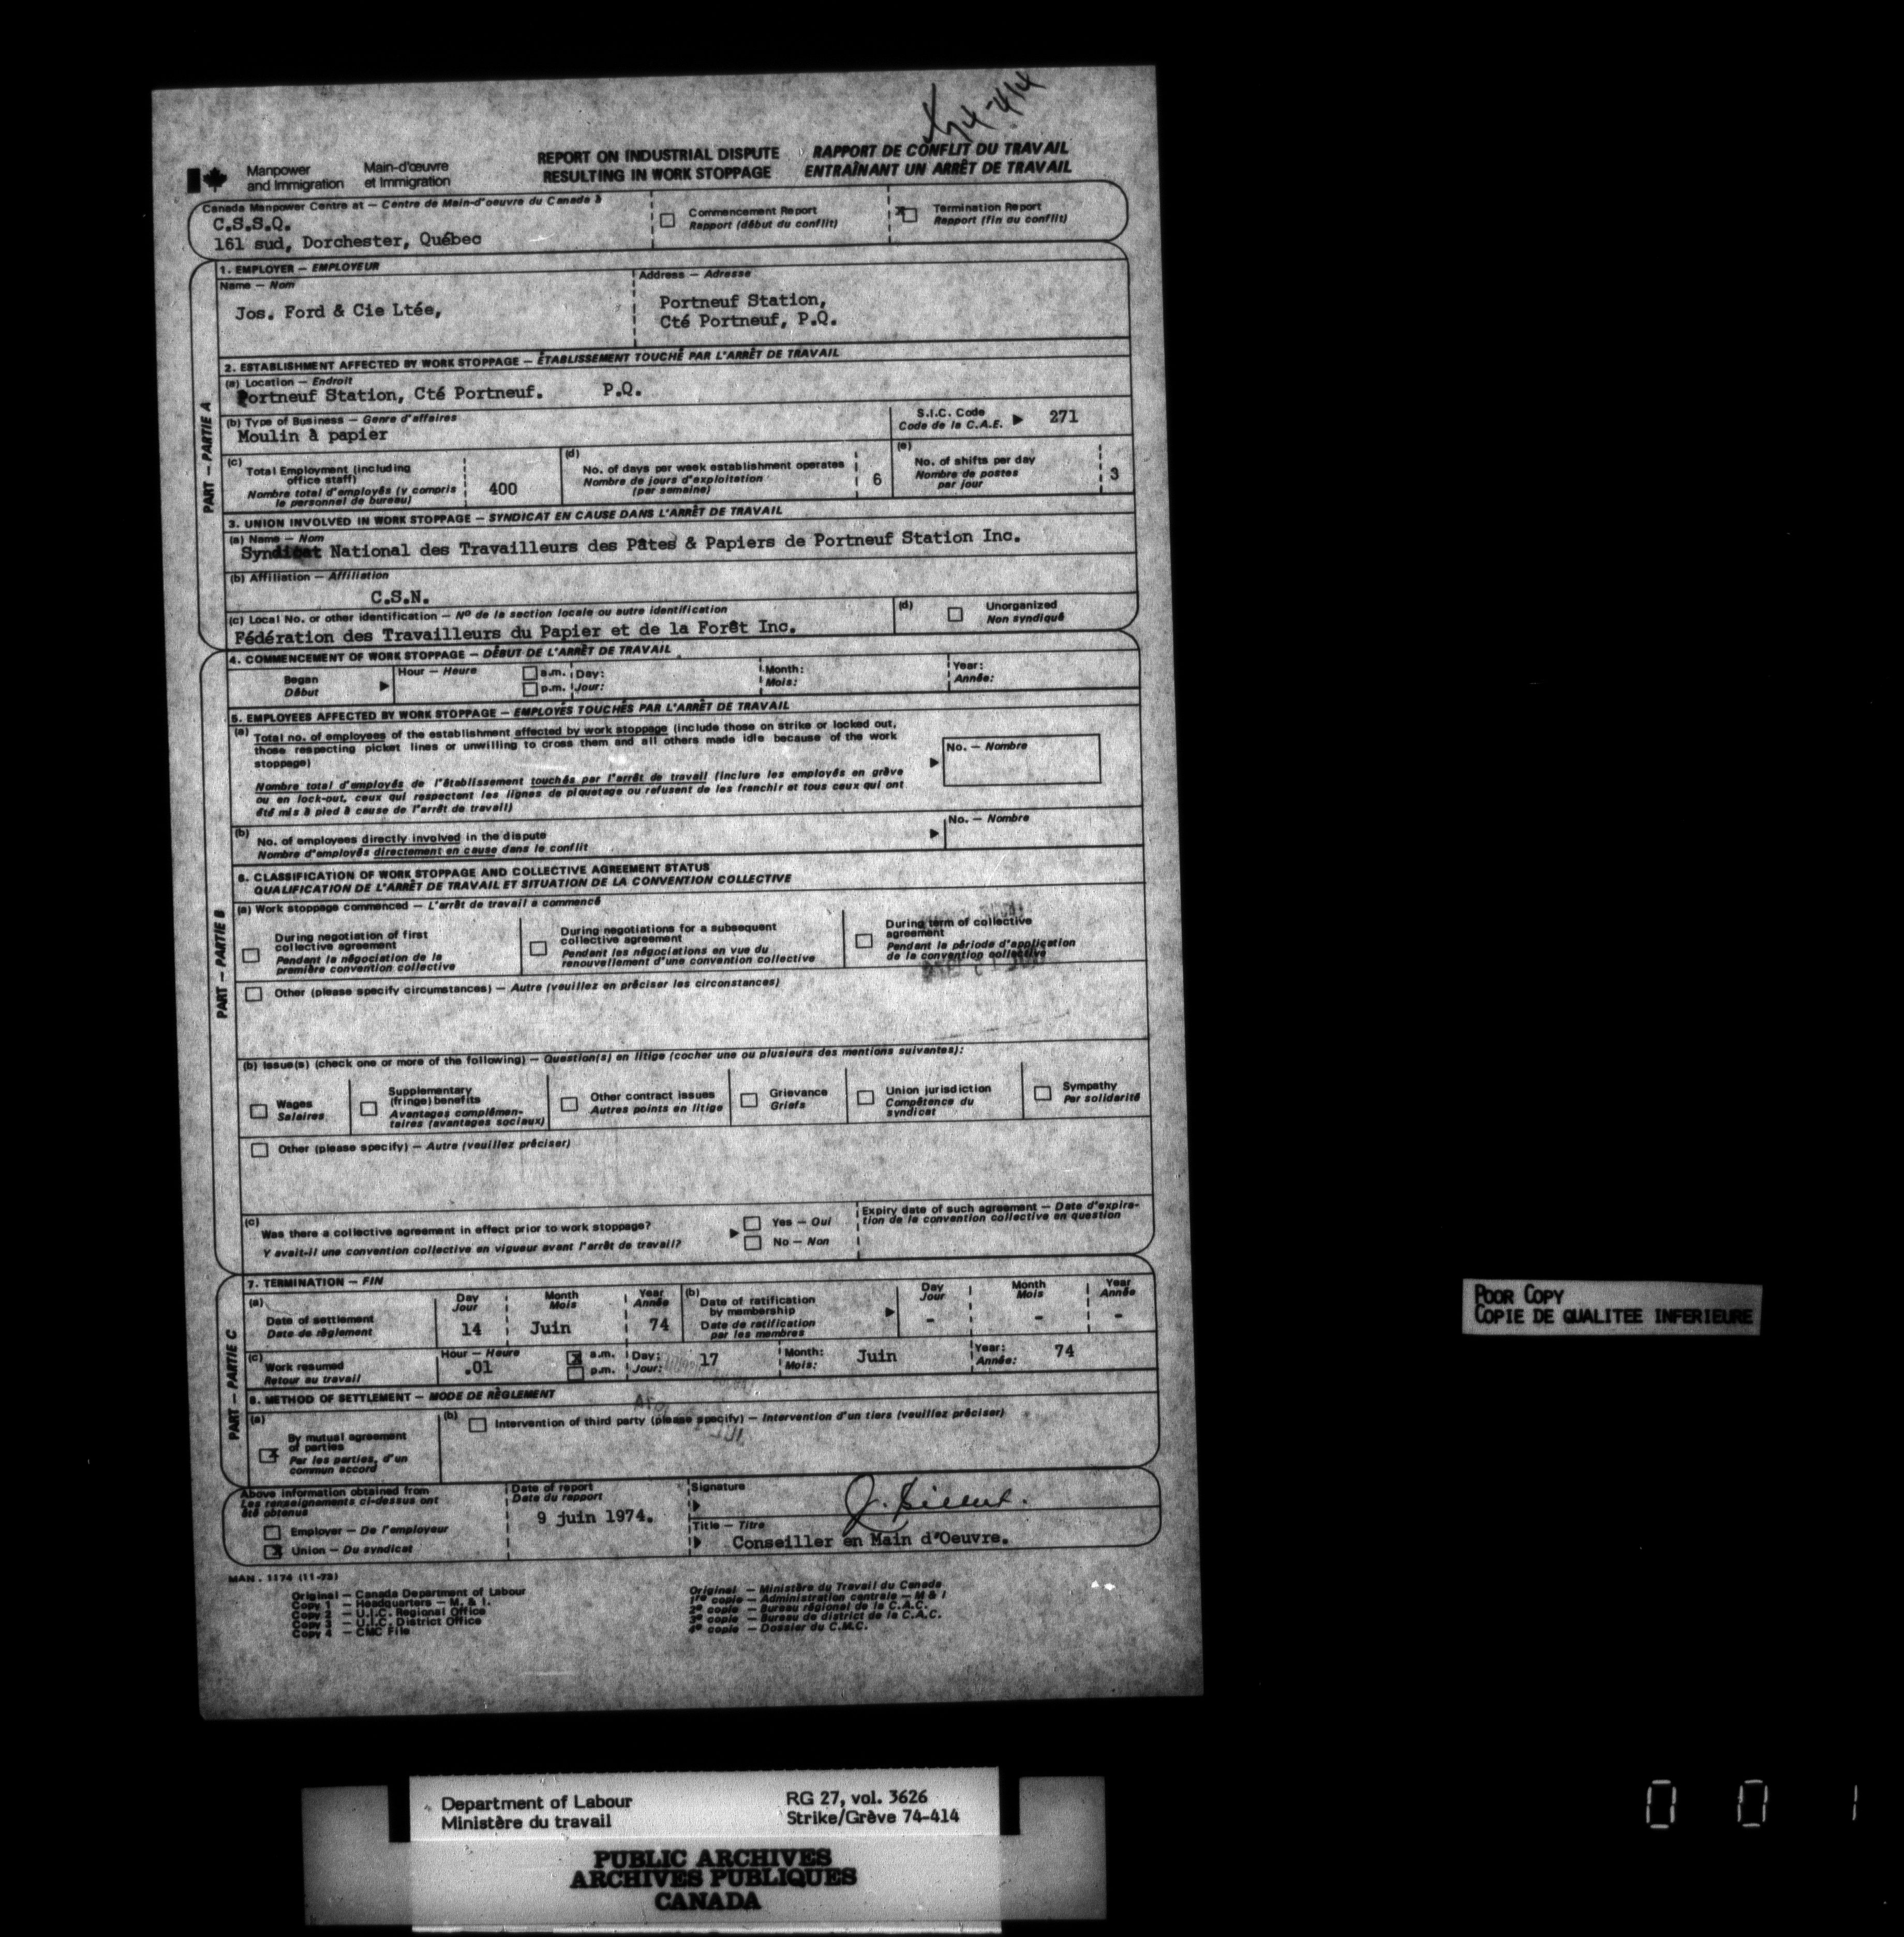 74-414
Manpower and Immigration
Main-d'œuvre et Immigration
REPORT ON INDUSTRIAL DISPUTE
RESULTING IN WORK STOPPAGE
RAPPORT DE CONFLIT DU TRAVAIL
ENTRAÎNANT UN ARRÊT DE TRAVAIL
Canada Manpower Centre at — Centre de Main-d'oeuvre du Canada à
C.S.S.Q.
161 sud, Dorchester, Québec
Commencement Report
Rapport (début du conflit)
x Termination Report
Rapport (fin du conflit)
PART — PARTIE A
1. EMPLOYER — EMPLOYEUR
Name — Nom
Jos. Ford & Cie Ltée,
Address — Adresse
Portneuf Station,
Cté Portneuf, P.Q.
2. ESTABLISHMENT AFFECTED BY WORK STOPPAGE — ÉTABLISSEMENT TOUCHÉ PAR L'ARRÊT DE TRAVAIL
(a) Location — Endroit
Portneuf Station, Cté Portneuf. P.Q.
(b) Type of Business — Genre d'affaires
Moulin à papier
S.I.C. Code
Code de la C.A.E. 271
(c) Total Employment (including
office staff)
Nombre total d'employés (y compris
le personnel de bureau)
400
(d) No. of days per week establishment operates
Nombre de jours d'exploitation
(par semaine)
6
(e) No. of shifts per day
Nombre de postes
par jour
3
3. UNION INVOLVED IN WORK STOPPAGE — SYNDICAT EN CAUSE DANS L'ARRÊT DE TRAVAIL
(a) Name — Nom
Syndicat National des Travailleurs des Pâtes & Papiers de Portneuf Station Inc.
(b) Affiliation — Affiliation
C.S.N.
(c) Local No. or other identification — Nº de la section locale ou autre identification
Fédération des Travailleurs du Papier et de la Forêt Inc.
(d) Unorganized
Non syndiqué
PART — PARTIE B
4. COMMENCEMENT OF WORK STOPPAGE — DÉBUT DE L'ARRÊT DE TRAVAIL
Began
Début
Hour — Heure
a.m.
p.m.
Day:
Jour:
Month:
Mois:
Year:
Année:
5. EMPLOYEES AFFECTED BY WORK STOPPAGE — EMPLOYÉS TOUCHÉS PAR L'ARRÊT DE TRAVAIL
(a) Total no. of employees of the establishment affected by work stoppage (include those on strike or locked out,
those respecting picket lines or unwilling to cross them and all others made idle because of the work
stoppage)
Nombre total d'employés de l'établissement touchés par l'arrêt de travail (inclure les employés en grève
ou en lock-out, ceux qui respectent les lignes de piquetage ou refusent de les franchir et tous ceux qui ont
été mis à pied à cause de l'arrêt de travail)
No. — Nombre
(b) No. of employees directly involved in the dispute
Nombre d'employés directement en cause dans le conflit
No. — Nombre
6. CLASSIFICATION OF WORK STOPPAGE AND COLLECTIVE AGREEMENT STATUS
QUALIFICATION DE L'ARRÊT DE TRAVAIL ET SITUATION DE LA CONVENTION COLLECTIVE
(a) Work stoppage commenced — L'arrêt de travail a commencé
During negotiation of first
collective agreement
Pendant la négociation de la
première convention collective
During negotiations for a subsequent
collective agreement
Pendant les négociations en vue du
renouvellement d'une convention collective
During term of collective
agreement
Pendant la période d'application
de la convention collective
Other (please specify circumstances) — Autre (veuillez en préciser les circonstances)
(b) Issue(s) (check one or more of the following) — Question(s) en litige (cocher une ou plusieurs des mentions suivantes):
Wages
Salaires
Supplementary
(fringe) benefits
Avantages complémen-
taires (avantages sociaux)
Other contract issues
Autres points en litige
Grievance
Griefs
Union jurisdiction
Compétence du
syndicat
Sympathy
Par solidarité
Other (please specify) — Autre (veuillez préciser)
(c) Was there a collective agreement in effect prior to work stoppage?
Y avait-il une convention collective en vigueur avant l'arrêt de travail?
Yes — Oui
No — Non
Expiry date of such agreement — Date d'expira-
tion de la convention collective en question
PART — PARTIE C
7. TERMINATION — FIN
(a) Date of settlement
Date de règlement
Day
Jour
14
Month
Mois
Juin
Year
Année
74
(b) Date of ratification
by membership
Date de ratification
par les membres
Day
Jour
-
Month
Mois
-
Year
Année
-
(c) Work resumed
Retour au travail
Hour — Heure
.01
x a.m.
p.m.
Day:
Jour:
17
Month:
Mois:
Juin
Year:
Année:
74
8. METHOD OF SETTLEMENT — MODE DE RÈGLEMENT
(a) x By mutual agreement
of parties
Par les parties, d'un
commun accord
(b) Intervention of third party (please specify) — Intervention d'un tiers (veuillez préciser)
Above information obtained from
Les renseignements ci-dessus ont
été obtenus
Employer — De l'employeur
x Union — Du syndicat
Date of report
Date du rapport
9 juin 1974.
Signature
Title — Titre
Conseiller en Main d'Oeuvre.
MAN. 1174 (11-72)
Original — Canada Department of Labour
Copy 1 — Headquarters — M. & I.
Copy 2 — U.I.C. Regional Office
Copy 3 — U.I.C. District Office
Copy 4 — CMC File
Original — Ministère du Travail du Canada
1re copie — Administration centrale — M & I
2e copie — Bureau régional de la C.A.C.
3e copie — Bureau de district de la C.A.C.
4e copie — Dossier du C.M.C.
POOR COPY
COPIE DE QUALITEE INFERIEURE
Department of Labour
Ministère du travail
RG 27, vol. 3626
Strike/Grève 74-414
PUBLIC ARCHIVES
ARCHIVES PUBLIQUES
CANADA
0 0 1